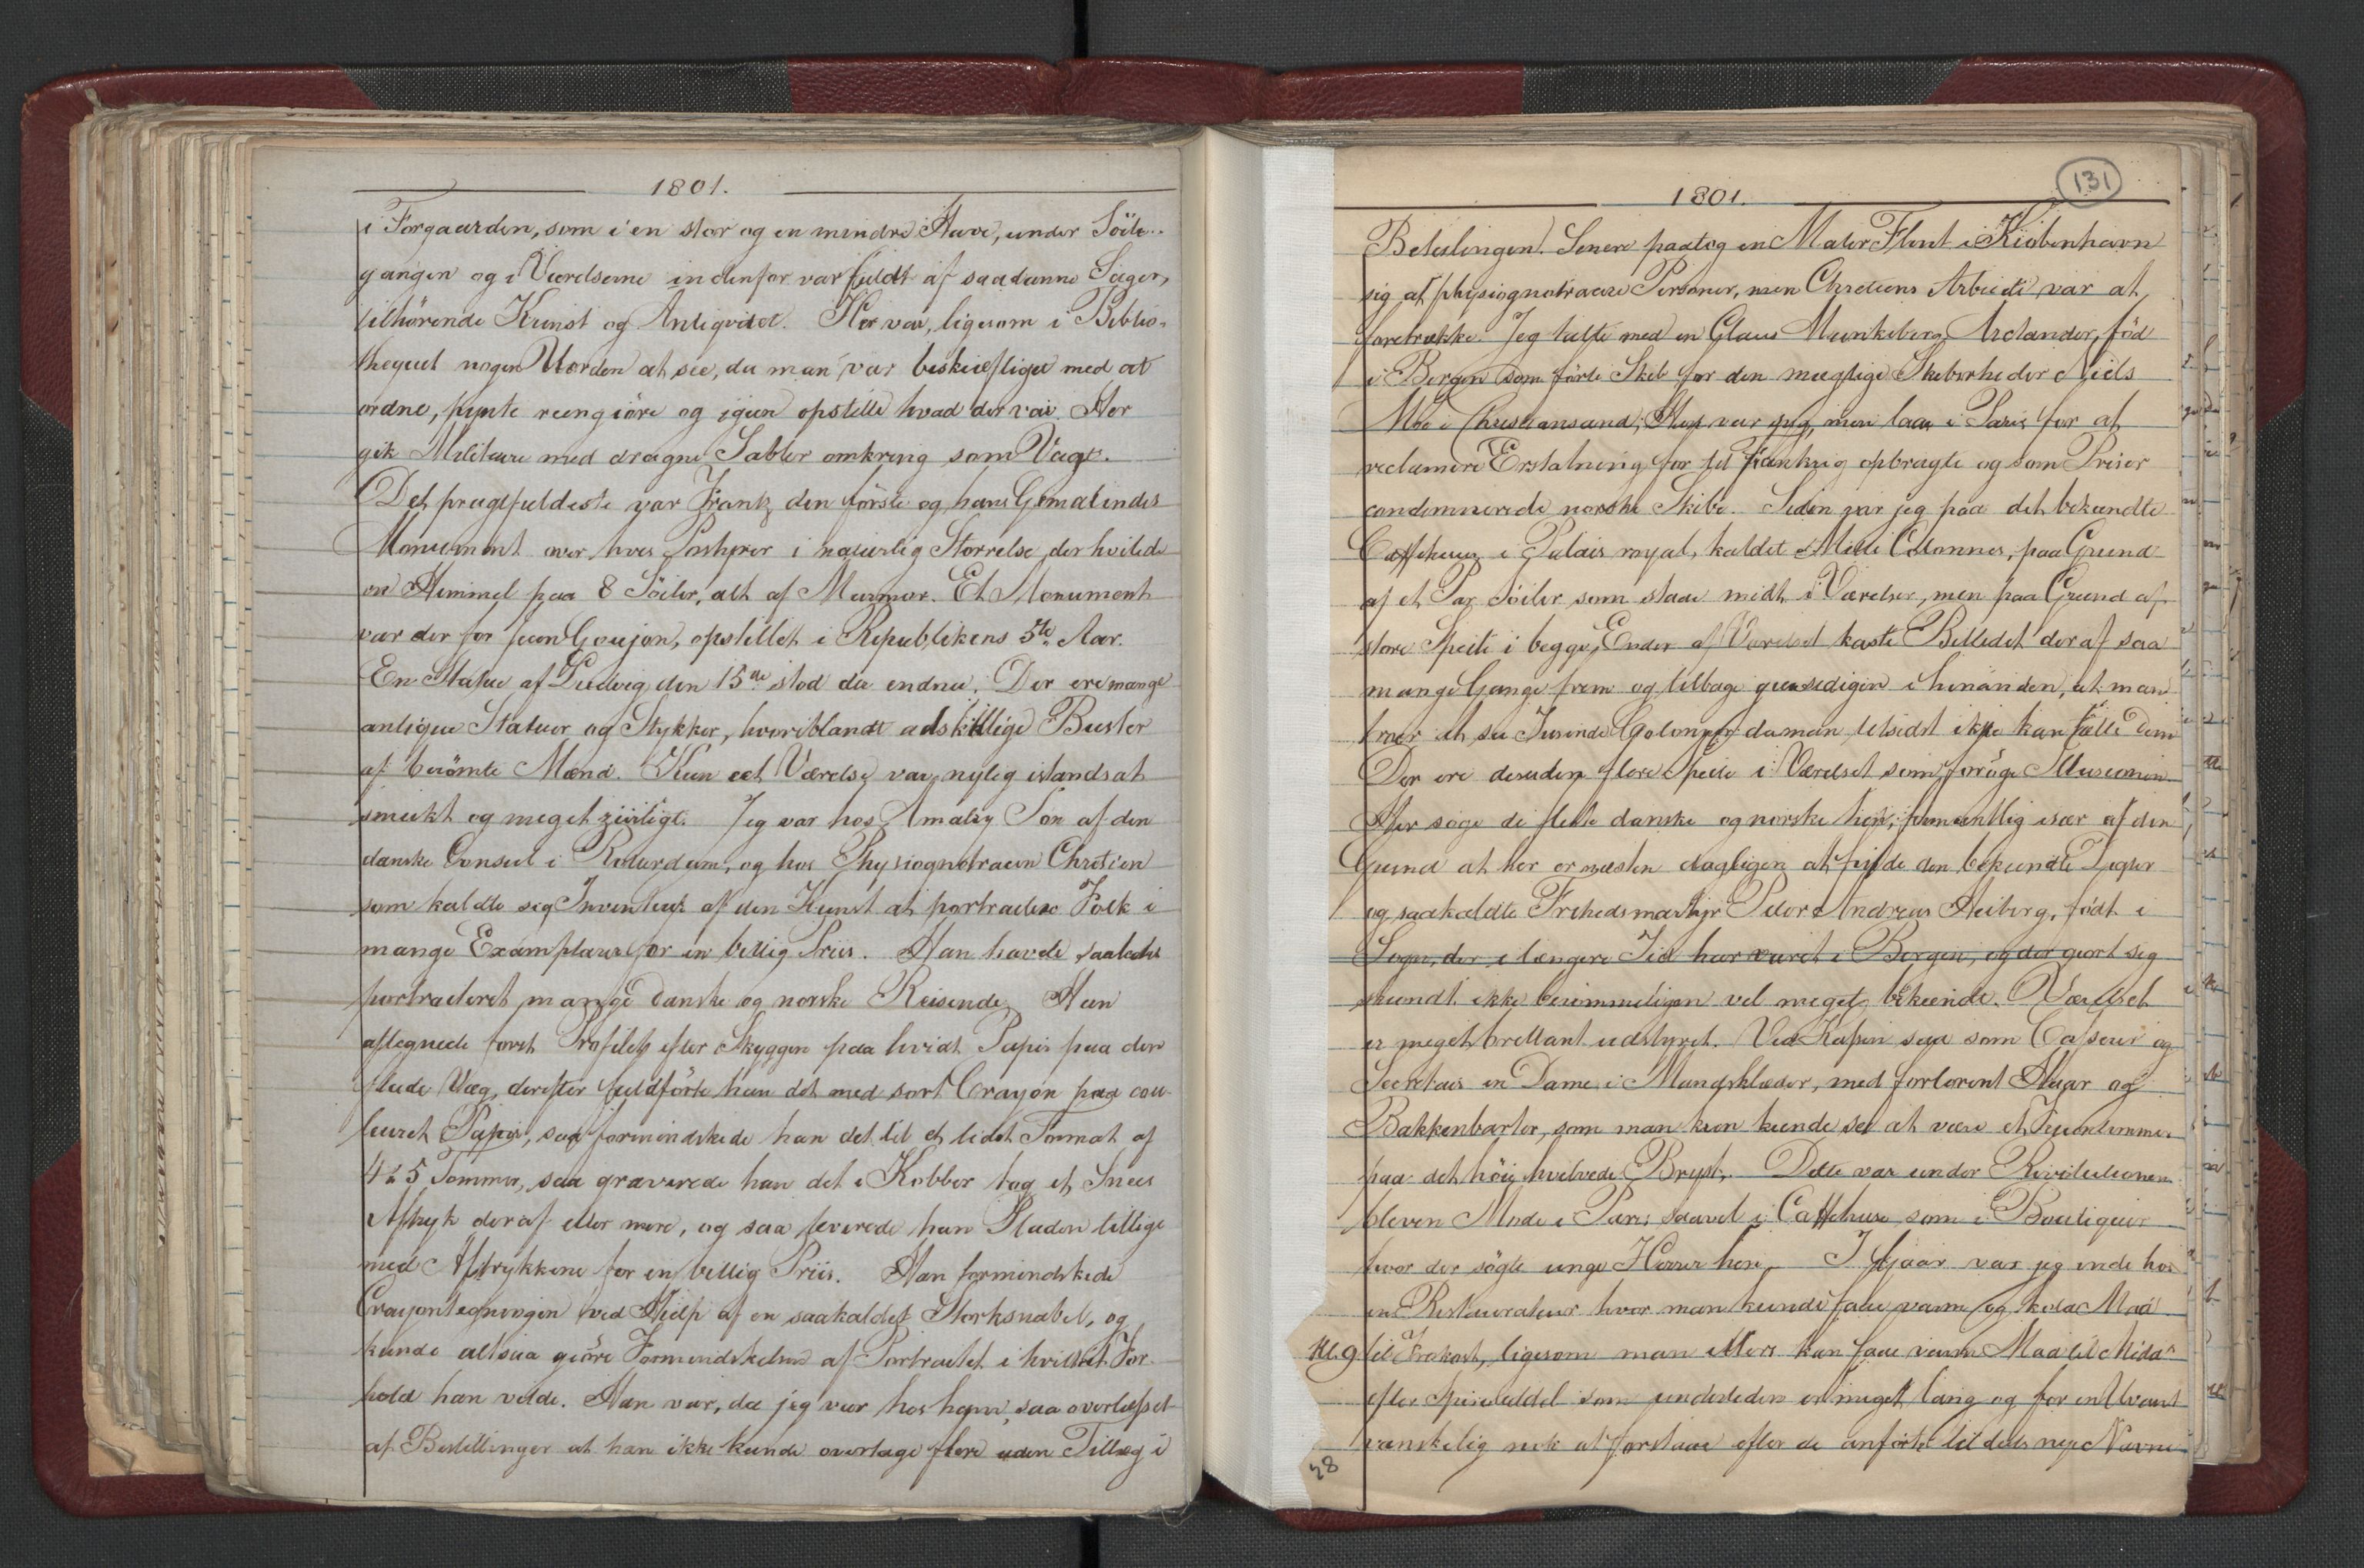 1801.
i Forgaarden, som i en stor og en mindre Have, under Söile-
gangen og i Værelserne indenfor var fuldt af saadanne Sager,
tilhörende Kunst og Antiqvitet. Her var, ligesom i Biblio-
thequet nogen Uorden at see, da man var beskieftiget med at
ordne, pynte reengiöre og igien opstille hvad der var. Her
gik Militaire med dragne Sabler omkring som Vagt.
Det pragtfuldeste var Frantz den förste og hans Gemalindes
Monument over hvis Porphyrer i naturlig Störrelse der hvilede
en Himmel paa 8 Söiler, alt af Marmor. Et Monument
var der for Jean Goujon, opstillet i Republikens 5te Aar.
En Statue af Ludvig den 15de stod da endnu. Der ere mange
antique Statuer og Stykker, hvoriblandt adskillige Buster
af berömte Mænd. Kun eet Værelse var nylig istandsat
smukt og meget ziirligt. Jeg var hos Amalry Sön af den
danske Consul i Rotterdam, og hos Physiognotracen Chretien
som kaldte sig Inventeur af den Kunst at portraitere Folk i
mange Examplarer for en billig Priis. Han havde saaledes
portraiteret mange danske og norske Reisende. Han
aftegnede först Profilet efter Skyggen paa hvidt Papir paa den
flade Væg, derefter fuldförte han det med sort Crayon paa cou-
leuret Papir, saa formindskede han det til et lidet Format af
4 à 5 Tommer, saa graverede han det i Kobber tog et Snees
Aftryk deraf eller mere, og saa leverede han Pladen tillige
med Aftrykkene for en billig Priis. Han formindskede
Crayontegningen ved Hielp af en saakaldet Storksnabel, og
kunde altsaa giöre Formindskelsen af Portraitet i hvilket For-
hold han vilde. Han var, da jeg var hos ham, saa overlæsset
af Bestillinger at han ikke kunde overtage flere uden Tillæg i
131
1801.
Betalingen. Senere paatog en Maler Flint i Kiöbenhavn
sig at physiognotracere Personer, men Chretiens Arbeide var at
foretrække. Jeg talte med en Claus Munkeberg Arctander, föd
i Bergen som förte Skib for den mægtige Skibsrheder Niels
Moe i Christiansand; Han var syg, men laae i Paris for at
reclamere Erstatning for til Frankrig opbragte og som Priser
condemnerede norske Skibe. Siden var jeg paa det bekiendte
Caffehuus i Palais royal, kaldet Mille Colonnes, paa Grund
af et Par Söiler som staae midt i Værelset, men paa Grund af
store Speile i begge Ender af Værelset kaste Billedet deraf saa
mange Gange frem og tilbage giensidigen i hinanden, at man
troer at see Tusinde Colonner da man tilsidst ikke kan tælle dem
Der ere desuden flere Speile i Værelset som foröge Illusionen
Her söge de fleste danske og norske hen, formentlig især af den
Grund at her er næsten dagligen at finde den bekiendte Digter
og saakaldte Frihedsmartyr Peter Andreas Heiberg, født i
Sogn, der i længere Tid har været i Bergen, og der giort sig
skiöndt ikke berömmeligen vel meget bekiendt. Værelset
er meget brillant udstyret. Ved Kassen sad som Casseur og
Secretair en Dame i Mandsklæder, med forlorent Haar og
Bakkenbarter, som man kun kunde see at være et Fruentimmer
paa det höie hvelvede Bryst. Dette var under Revolutionen
bleven Mode i Paris saavel i Caffehuse som i Boutiquer
hvor der sögte unge Herrer hen. I Gaar var jeg inde hos
en Restaurateur hvor man kunde faae varm og kold Mad
Kl. 9 til Frokost, ligesom man ellers kan faae varm Mad til Middag
efter Spiseseddel som sædvanlig er meget lang og for en Uvant
vanskelig nok at forstaae efter de anförte til deels nye Navne
28